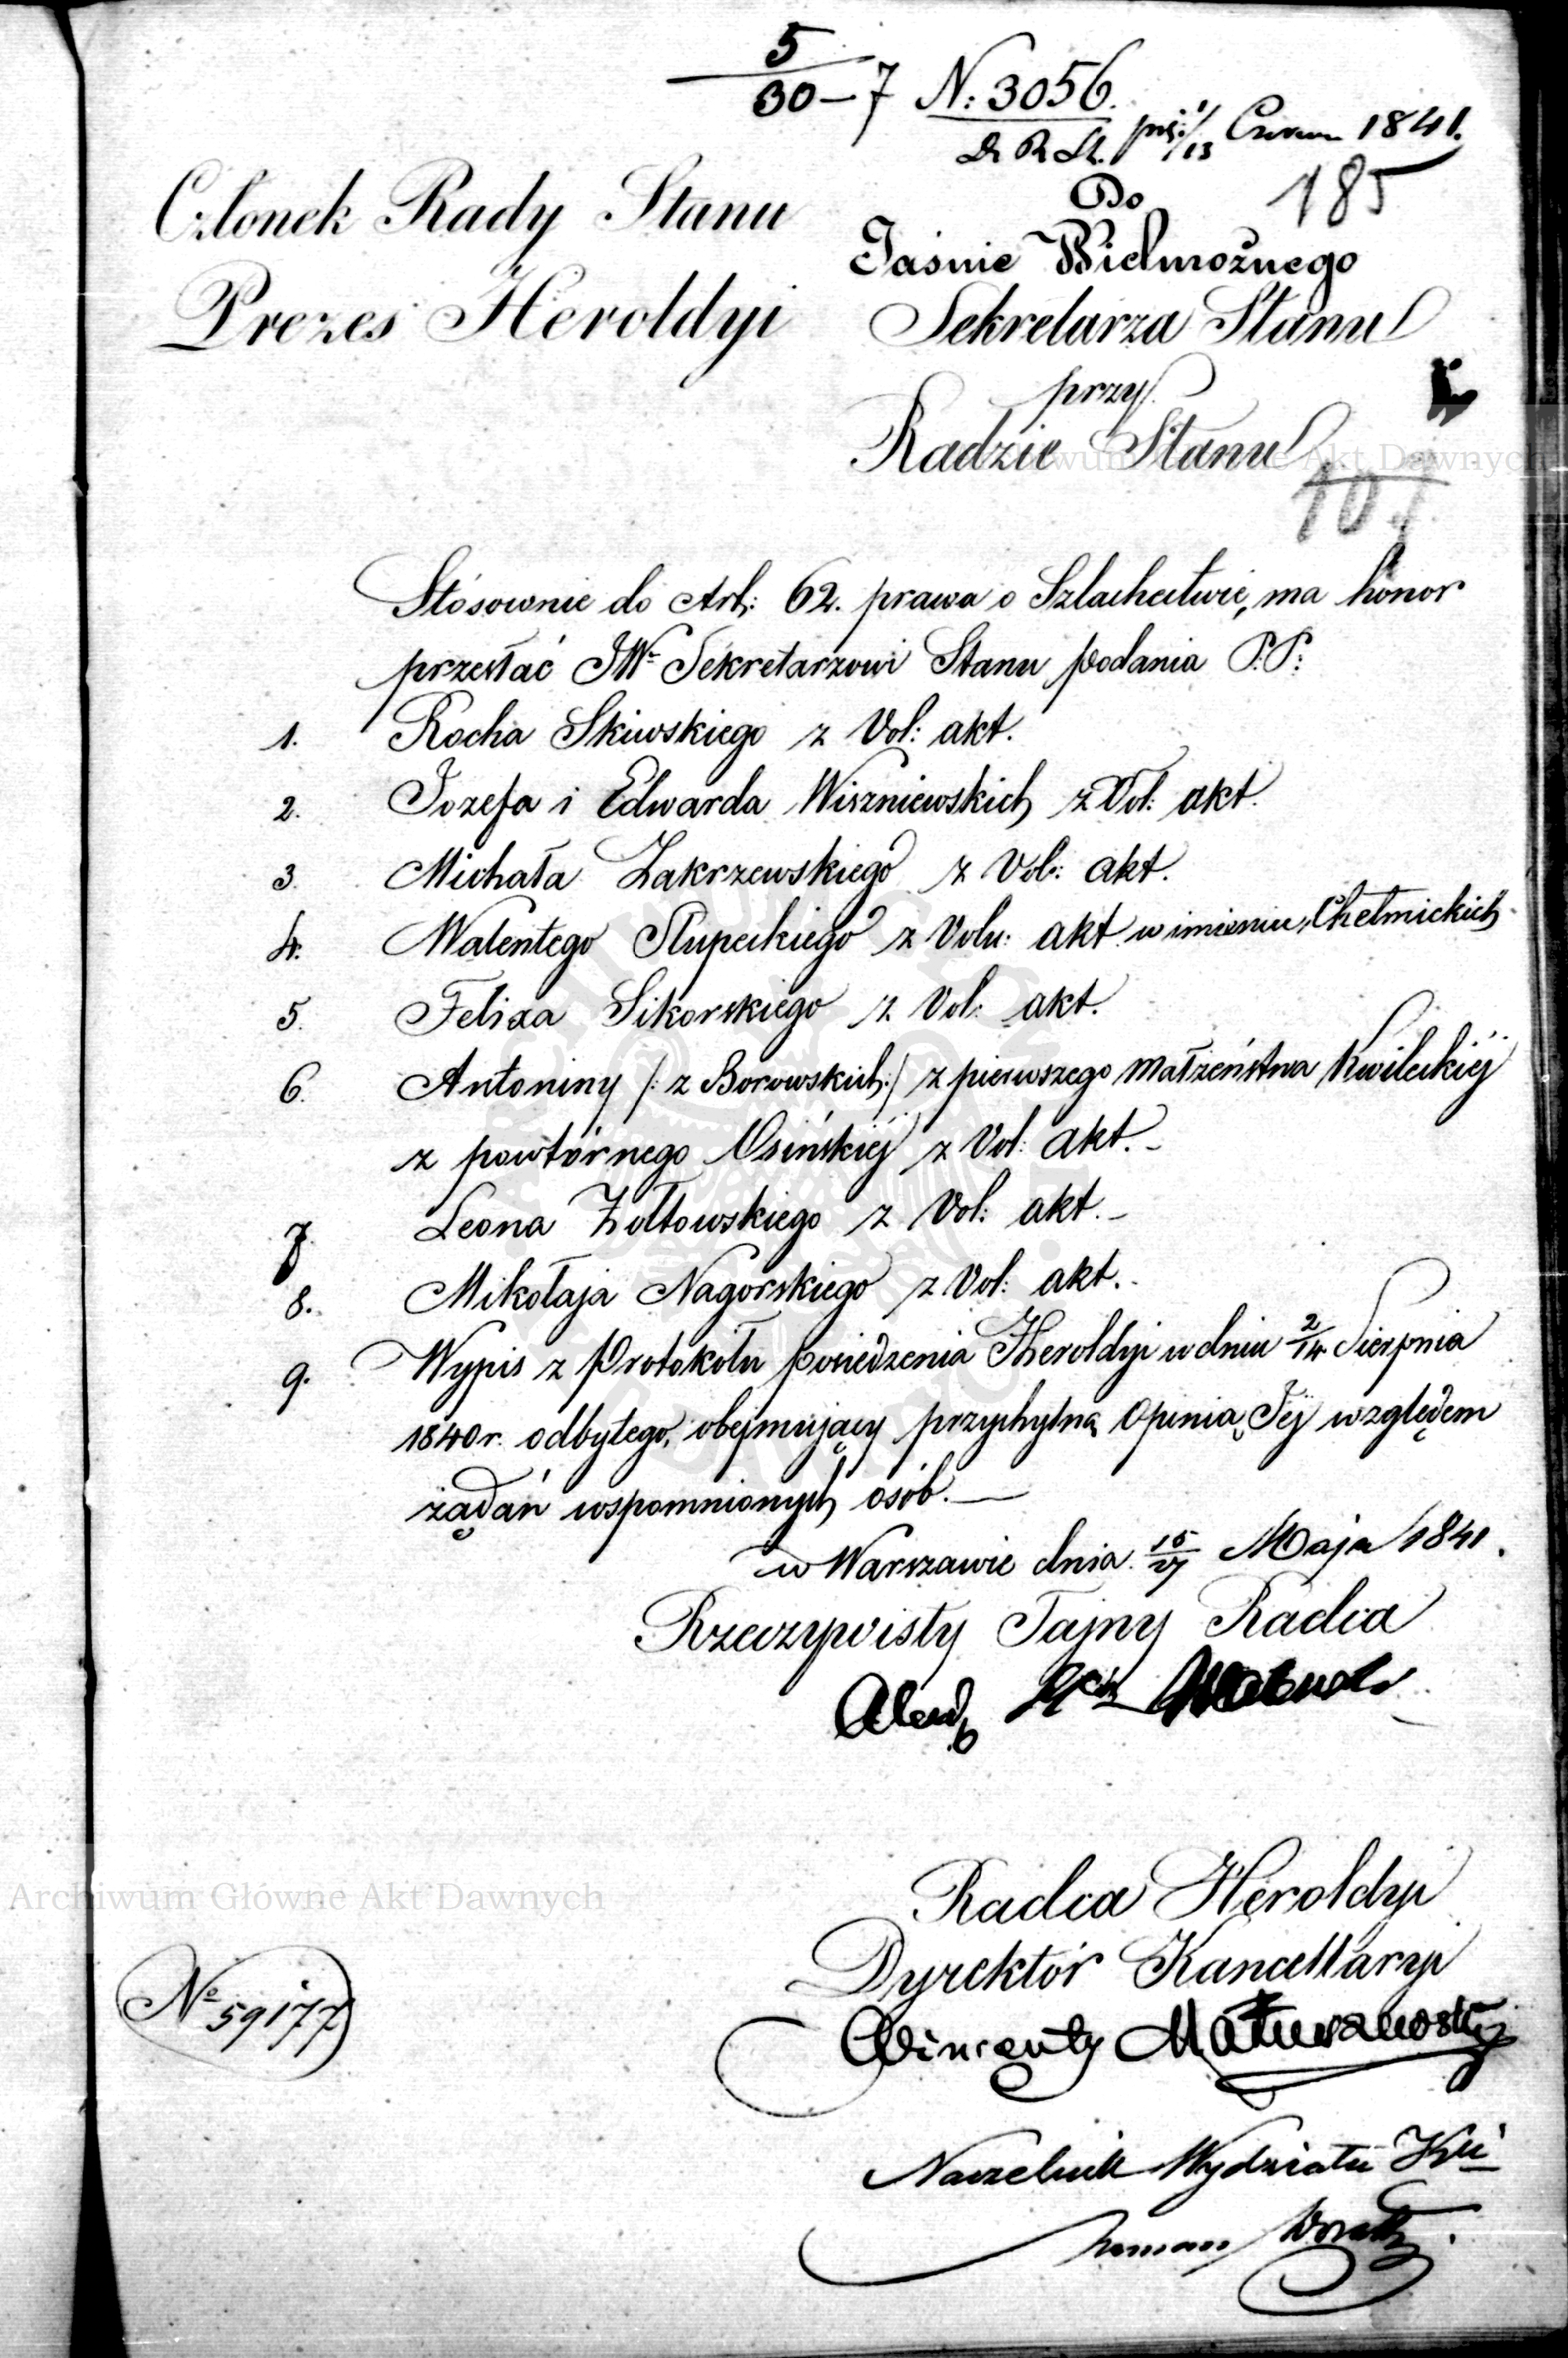 5
30 – 7 N: 3056.
D. R. St. 1/13 Czerwca 1841.
185
Członek Rady Stanu
Prezes Heroldyi
Do
Jaśnie Wielmożnego
Sekretarza Stanu
przy
Radzie Stanu
107
Stósownie do Art: 62. prawa o Szlachectwie, ma honor
przesłać JWu Sekretarzowi Stanu podania P.P:
1. Rocha Skiwskiego z Vol: akt.
2. Jozefa i Edwarda Wiszniewskich z Vol: akt.
3. Michała Zakrzewskiego z Vol: akt.
4. Walentego Słupeckiego z Volu: akt. w imieniu Chełmickich
5. Felixa Sikorskiego z Vol: akt.
6. Antoniny /: z Borowskich :/ z pierwszego małżeństwa Kwileckiéj
z powtórnego Osińskiéj z Vol: akt. –
7. Leona Żołtowskiego z Vol: akt. –
8. Mikołaja Nagorskiego z Vol: akt. –
9. Wypis z Protokółu posiedzenia Heroldyi w dniu 2/14 Sierpnia
1840 r. odbytego, obejmujący przychylną Opinią Jéj względem
żądań wspomnionych osób. —
w Warszawie dnia 15/27 Maja 1841.
Rzeczywisty Tajny Radca
Radca Heroldyi
Dyrektór Kancellaryi
Wincenty Matuszewski
No 59177
Naczelnik Wydziału
Archiwum Główne Akt Dawnych
Archiwum Główne Akt Dawnych